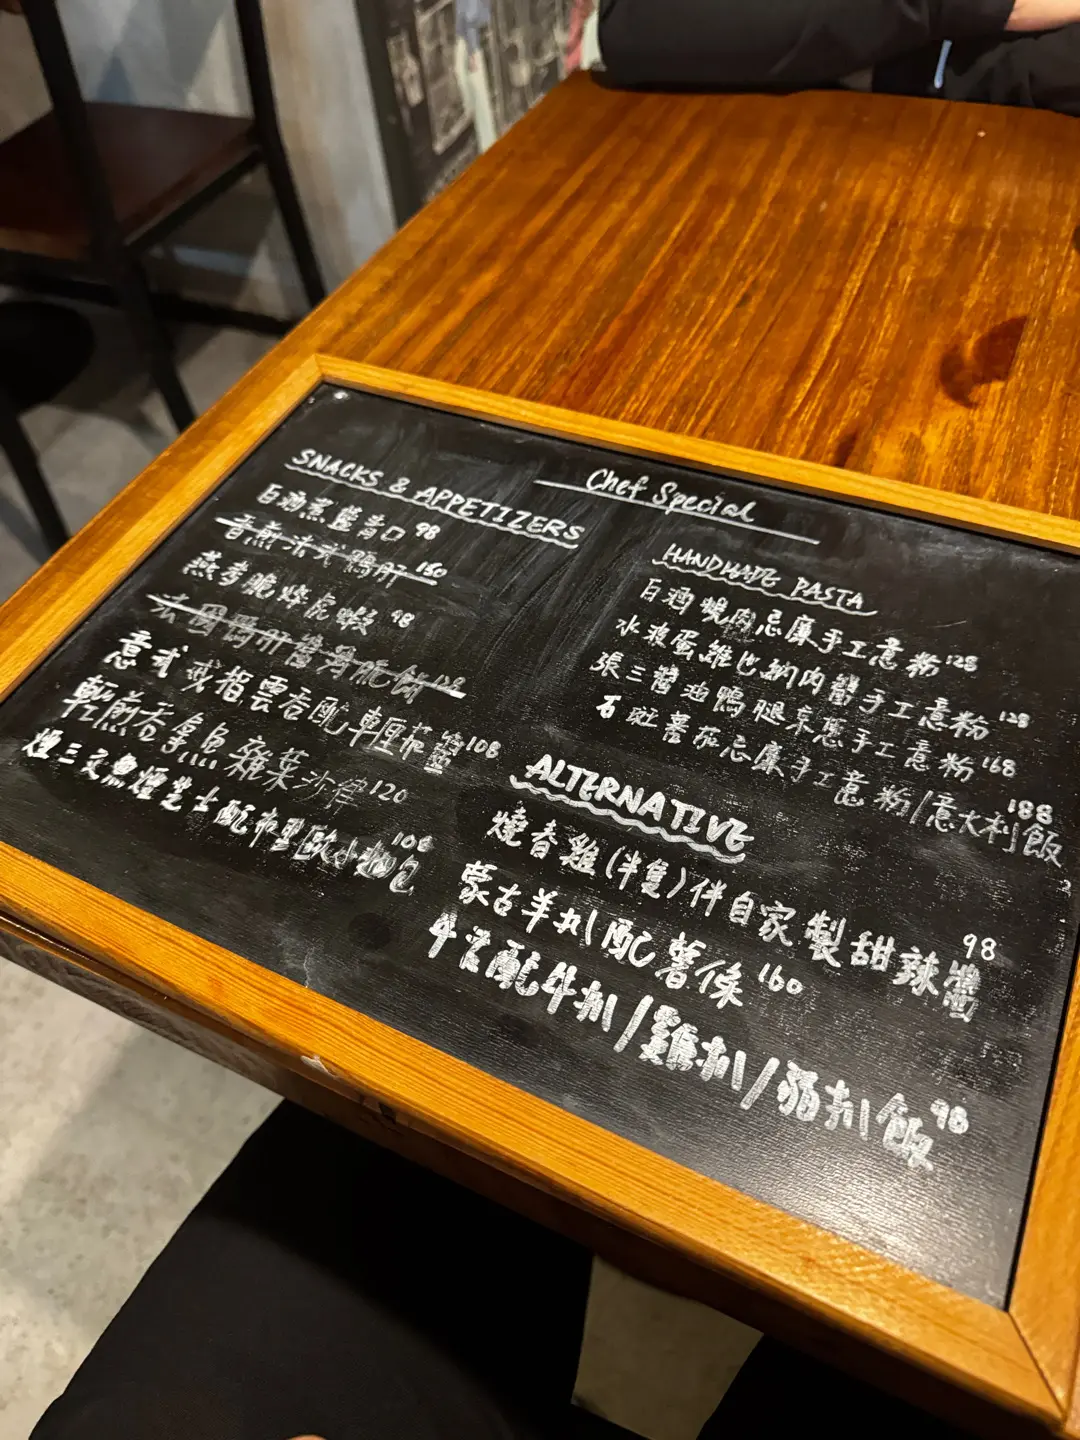 Chef Special
SNACKS & APPETIZERS
白酒煮藍青口 98
香煎法式鴨肝 160
燕麥脆炸虎蝦 98
法國鴨肝醬薄脆餅 128
意式戒指雲吞配車厘茄醬 108
輕煎吞拿魚雜菜沙律 120
煙三文魚煙芝士配布里歐小麵包 108
HANDMADE PASTA
白酒蜆肉忌廉手工意粉 128
水波蛋維也納肉醬手工意粉 128
張三醬油鴨腿京葱手工意粉 168
石斑蕃茄忌廉手工意粉/意大利飯 188
ALTERNATIVE
燒春雞(半隻)伴自家製甜辣醬 98
蒙古羊扒配薯條 160
牛扒/雞扒/豬扒飯 98